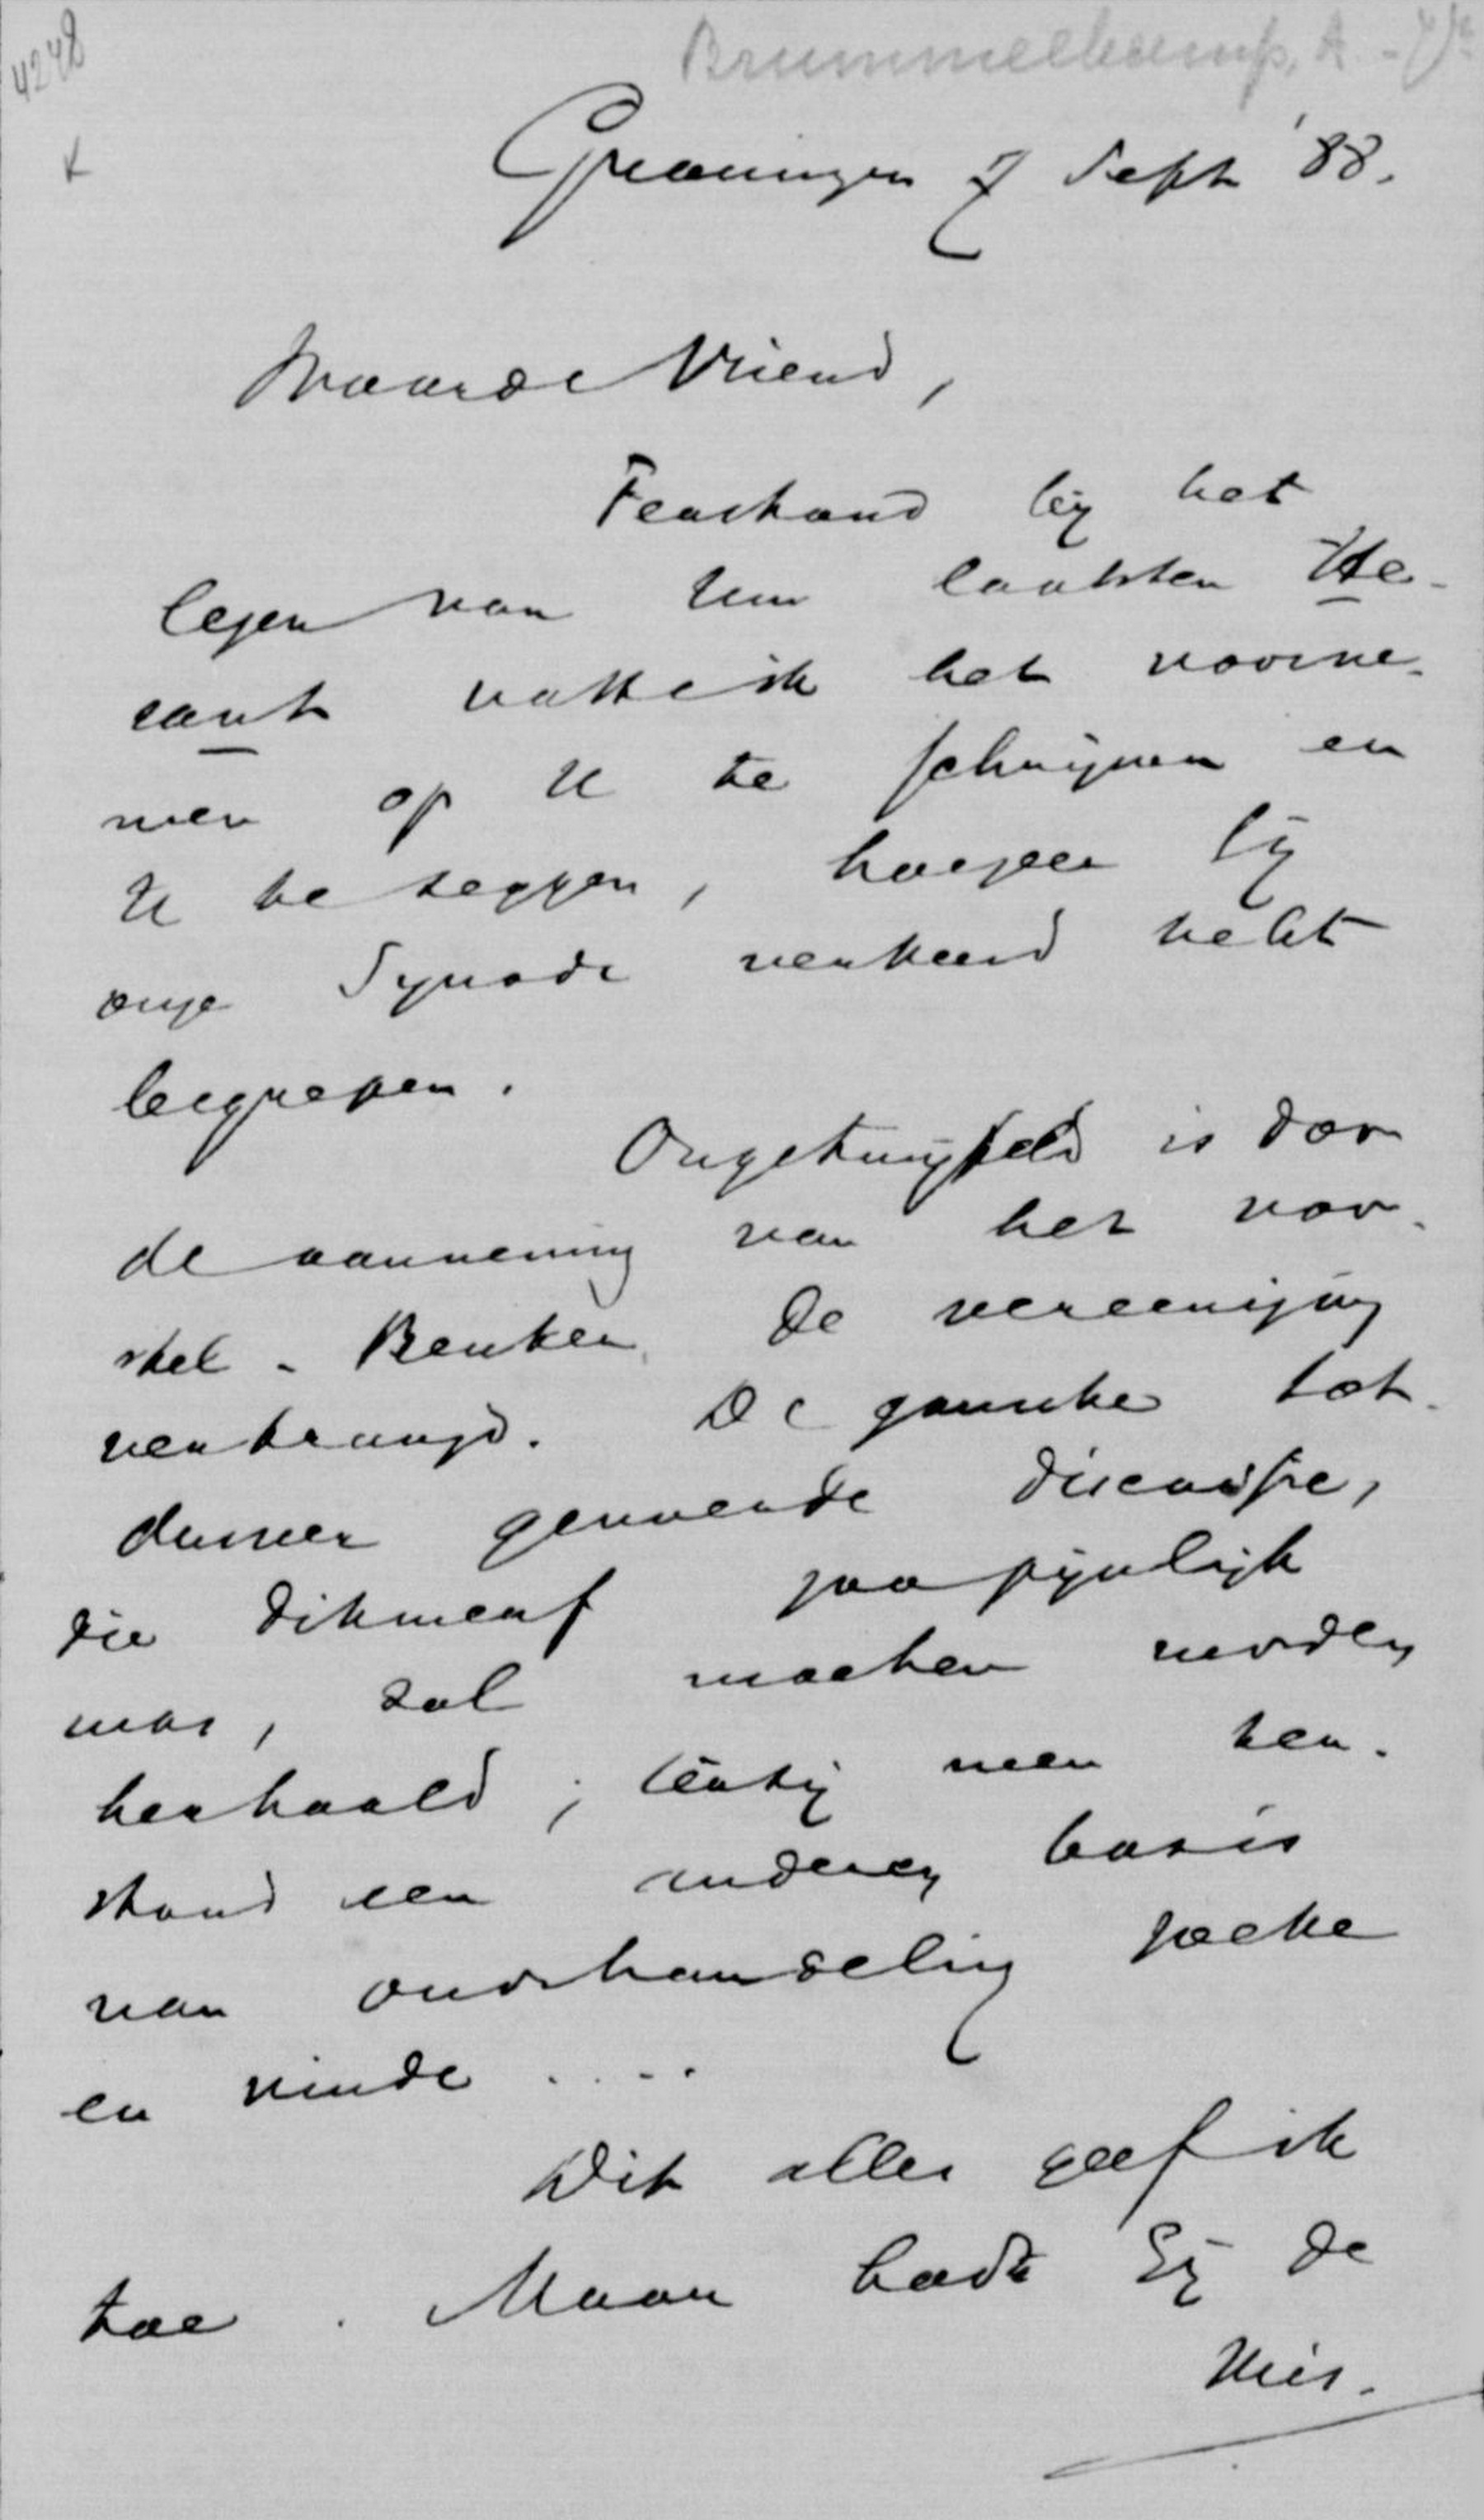 4248
Brummelkamp, A - Jr
K
Groningen 7 Sept '88.
Waarde Vriend,
Terstond bij het
lezen van Uw laatsten He-
raut vatte ik het voorne-
men op U te schrijven en
U te zeggen, hoezeer Gij
onze Synode verkeerd hebt
begrepen.
Ongetwijfeld is door
de aanneming van het voor-
stel - Beuker de vereeniging
vertraagd. De gansche tot
dusver gevoerde discussie,
die dikwerf zoo pijnlijk
was, zal moeten worden
herhaald; tenzij men ter-
stond een anderen basis
van onderhandeling zoeke
en vinde ....
Dit alles geef ik
toe. Maar hadt Gij de
Vries.